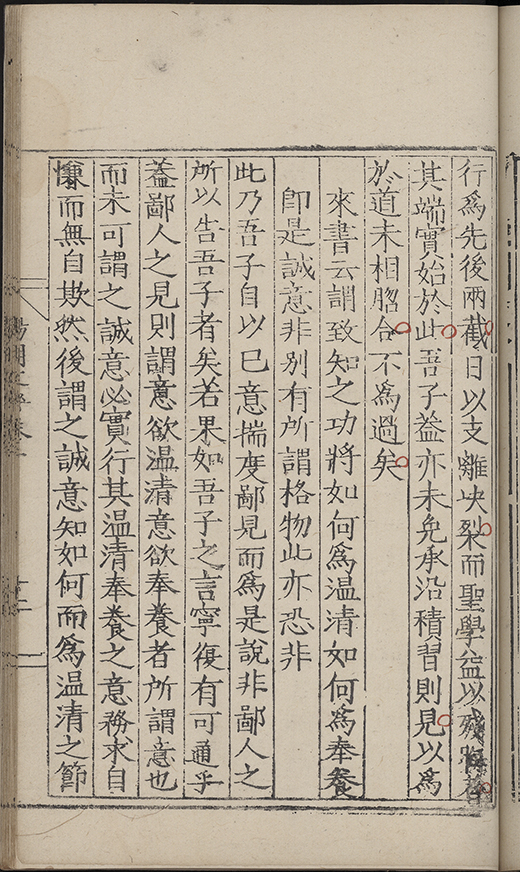 行爲先後兩截日以支離央裂而聖學益以殘晦者
其端實始於此吾子葢亦未免承沿積習則見以爲
於道未相脗合不爲過矣
來書云謂致知之功將如何爲温清如何爲奉養
卽是誠意非别有所謂格物此亦恐非
此乃吾子自以已意揣度鄙見而爲是說非鄙人之
所以告吾子者矣若果如吾子之言寧復有可通乎
葢鄙人之見則謂意欲温清意欲奉養者所謂意也
而未可謂之誠意必實行其温清奉養之意務求自
慊而無自欺然後謂之誠意知如何而爲温清之節